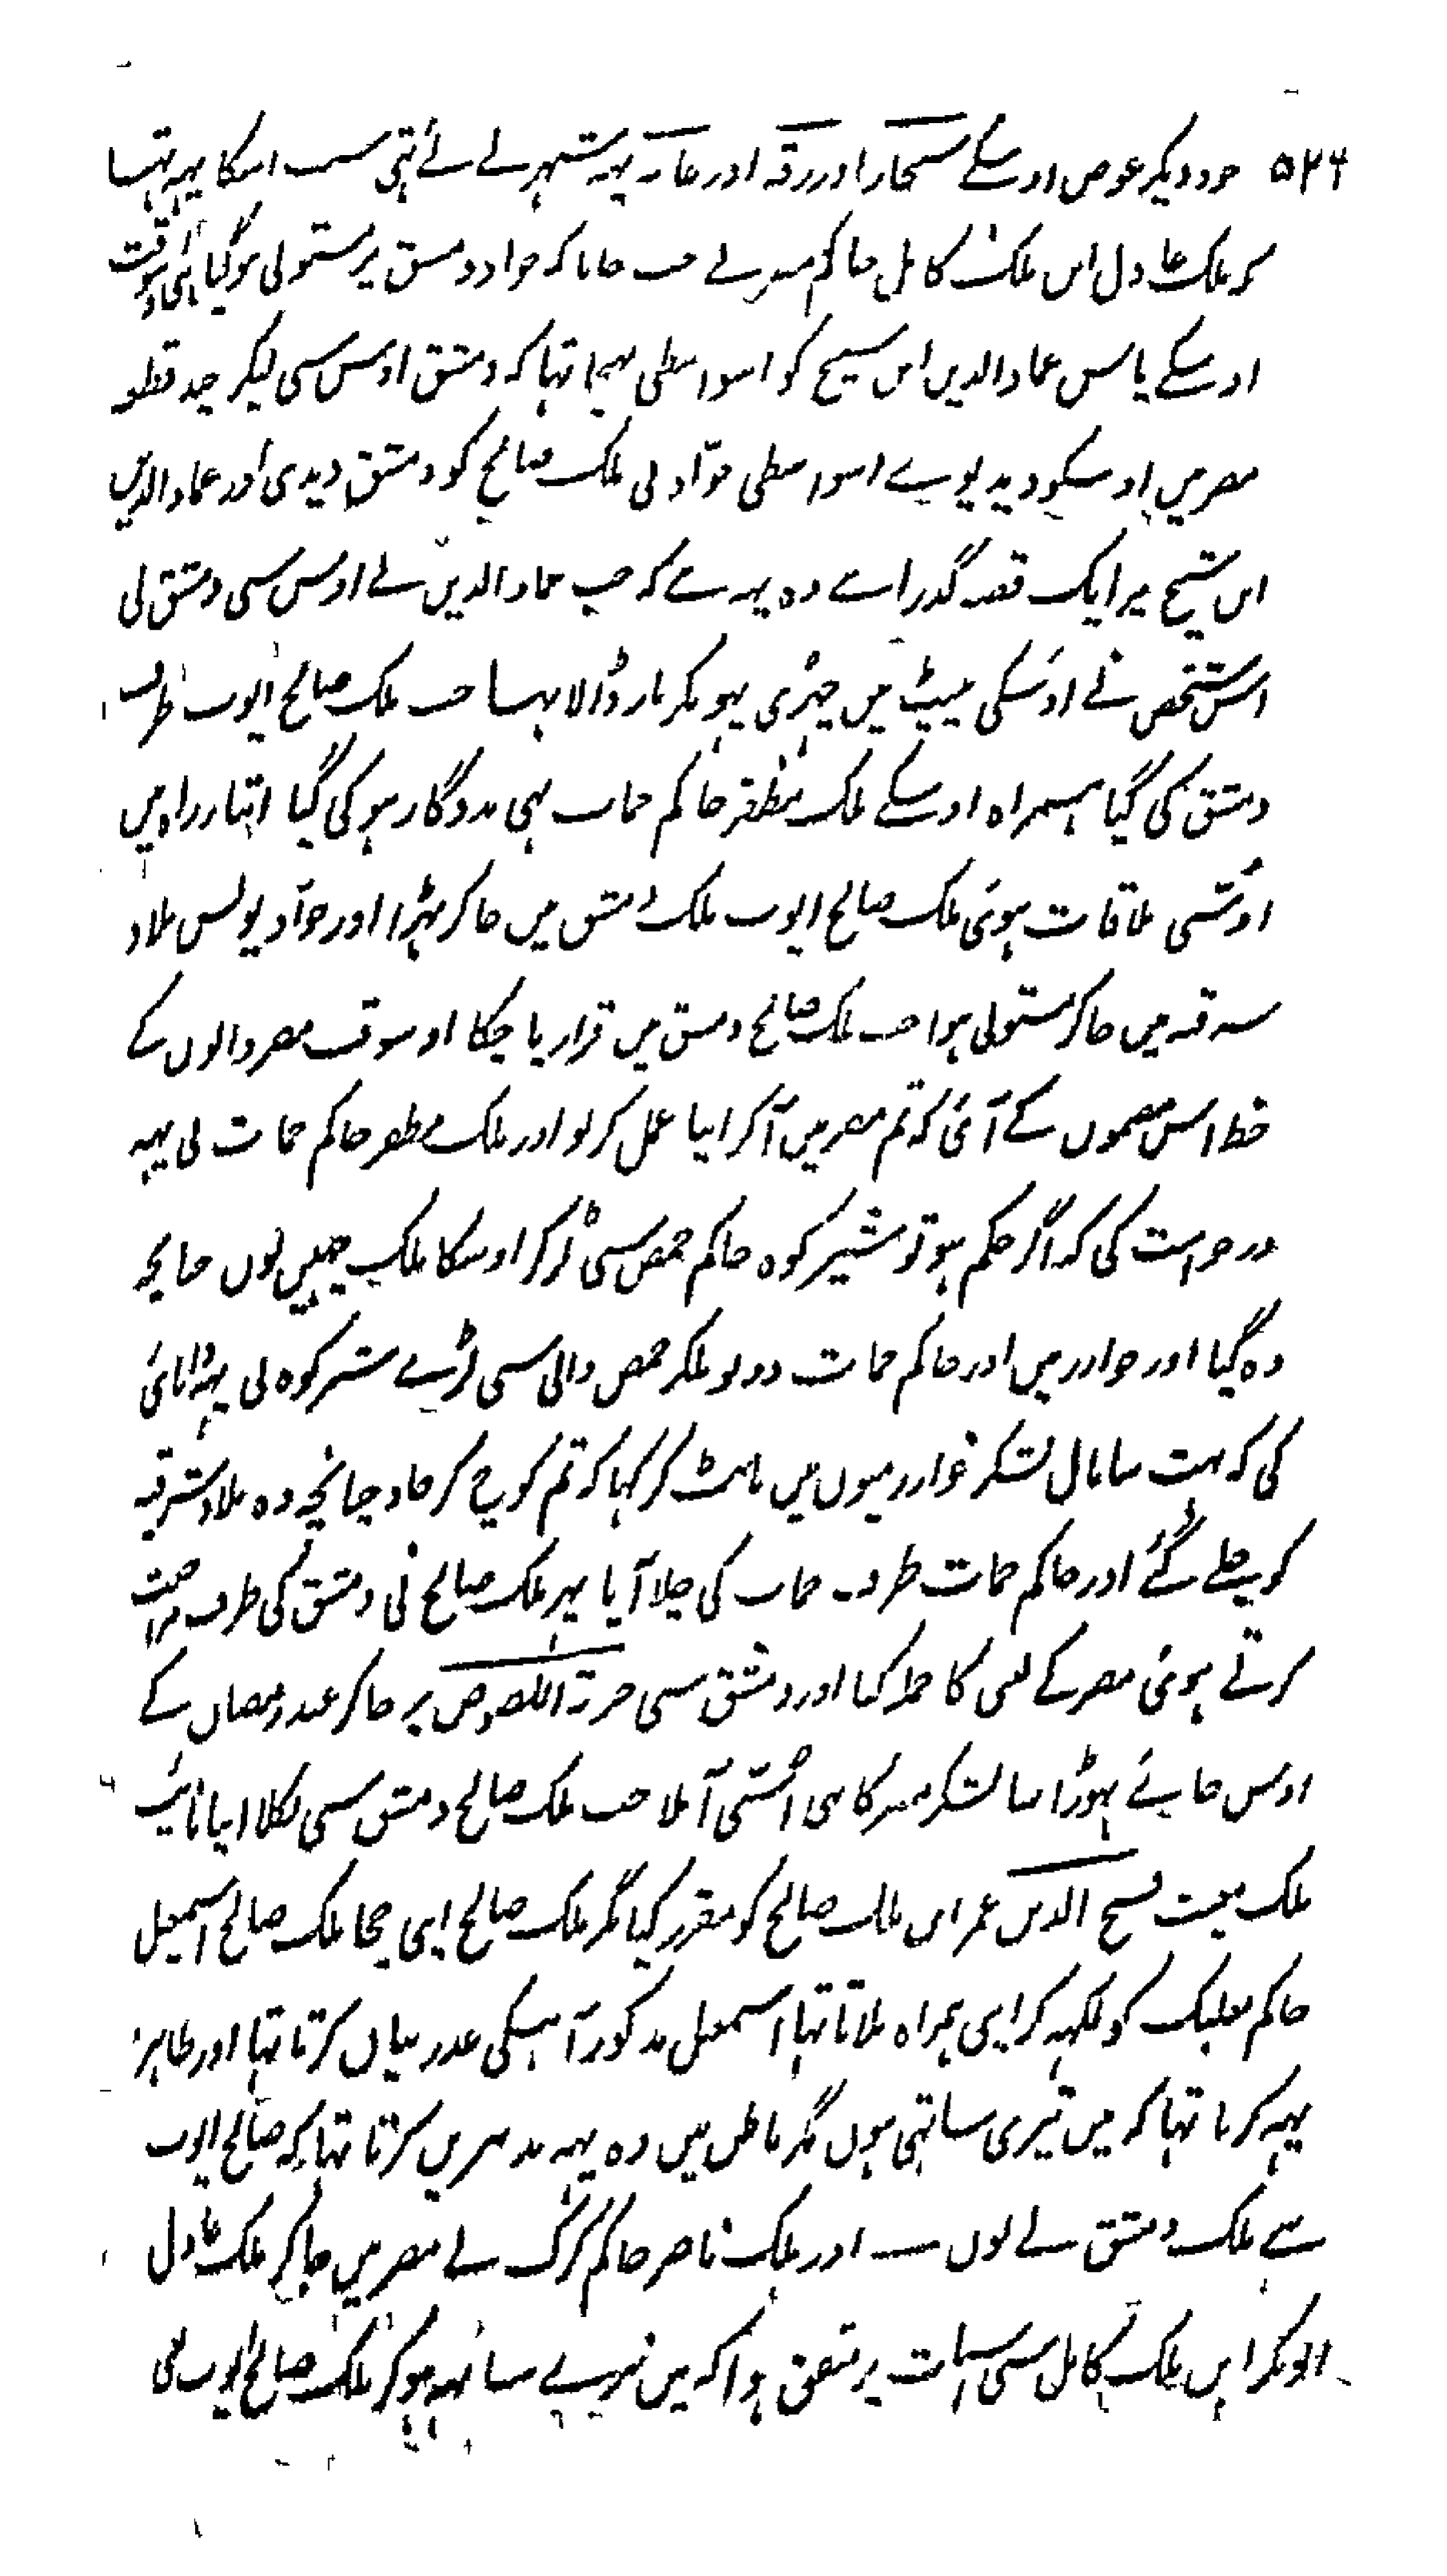 ۵۲۴ خود دیکر عوض اوسکے سنجار اور رقہ اور عانہ یہہ شہر لے لئے تہی سبب اسکا یہہ تہا
کہ ملک عادل ابن ملک کامل حاکم مصر نے جب جانا کہ جواد دمشق پر مستولی ہو گیا ہی اوسوقت
اوسکے پاس عماد الدین ابن شیخ کو اسواسطی بہیجا تہا کہ دمشق اوس سی لیکر چند قطعہ
مصر میں اوسکو دیدیوے اسواسطی جوّاد نی ملک صالح کو دمشق دیدی اور عماد الدین
ابن شیخ پر ایک قصہ گذرا ہے وہ یہہ ہے کہ جب عماد الدین نے اوس سی دمشق لی
اس شخص نے اوسکی پیٹ میں چہڑی بہونکر مار ڈالا تہا جب ملک صالح ایوب طرف
دمشق کی گیا ہمراہ اوسکے ملک مظفر حاکم حمات بہی مددگار ہو کی گیا اثنار راہ میں
اوسی ملاقات ہوئی ملک صالح ایوب ملک دمشق میں جا کر ٹہرا اور جوّاد یونس بلاد
شرقیہ میں جا کر مستولی ہوا جب ملک صالح دمشق میں قرار پا چکا اوسوقت مصر والوں کے
خط اس مضموں کے آئی کہ تم مصر میں آ کر اپنا عمل کر لو اور ملک مظفر حاکم حمات نی یہہ
درخواست کی کہ اگر حکم ہو تو شیر کوہ حاکم حمص سی لڑ کر اوسکا ملک چہین لوں چنانچہ
وہ گیا اور خوارزمیں اور حاکم حمات دونو ملکر حمص والی سی لڑے شیر کوہ نی یہہ دانائی
کی کہ بہت سا مال لشکر خوارزمیوں میں بانٹ کر کہا کہ تم کوچ کر جاو چنانچہ وہ بلاد شرقیہ
کو چلے گئے اور حاکم حمات طرف حمات کی چلا آیا پہر ملک صالح نی دمشق کی طرف مراجعت
کرتے ہوئی مصر کے لینی کا حملہ کیا اور دمشق سی خربۃ اللصوص پر جا کر عید رمضان کے
اوس جائے تہوڑا سا لشکر مصر کا بہی اسی آ ملا جب ملک صالح دمشق سی نکلا اپنا نایب
ملک مغیث فتح الدین عمر ابن ملک صالح کو مقرر کیا مگر ملک صالح اپنی چچا ملک صالح اسمعیل
حاکم بعلبک کو لکہہ کر اپنی ہمراہ بلاتا تہا اسمعیل مذکور آہستگی عذر بیاں کرتا تہا اور ظاہر
یہہ کرتا تہا کہ میں تیری ساتہی ہوں مگر باطن میں وہ یہہ تدبیریں کرتا تہا کہ صالح ایوب
سے ملک دمشق لے لوں — اور ملک ناصر حاکم کرک نے مصر میں جا کر ملک عادل
ابو بکر ابن ملک کامل سی اسبات پر متفق ہوا کہ میں تیرے ساتہہ ہو کر ملک صالح ایوب کی